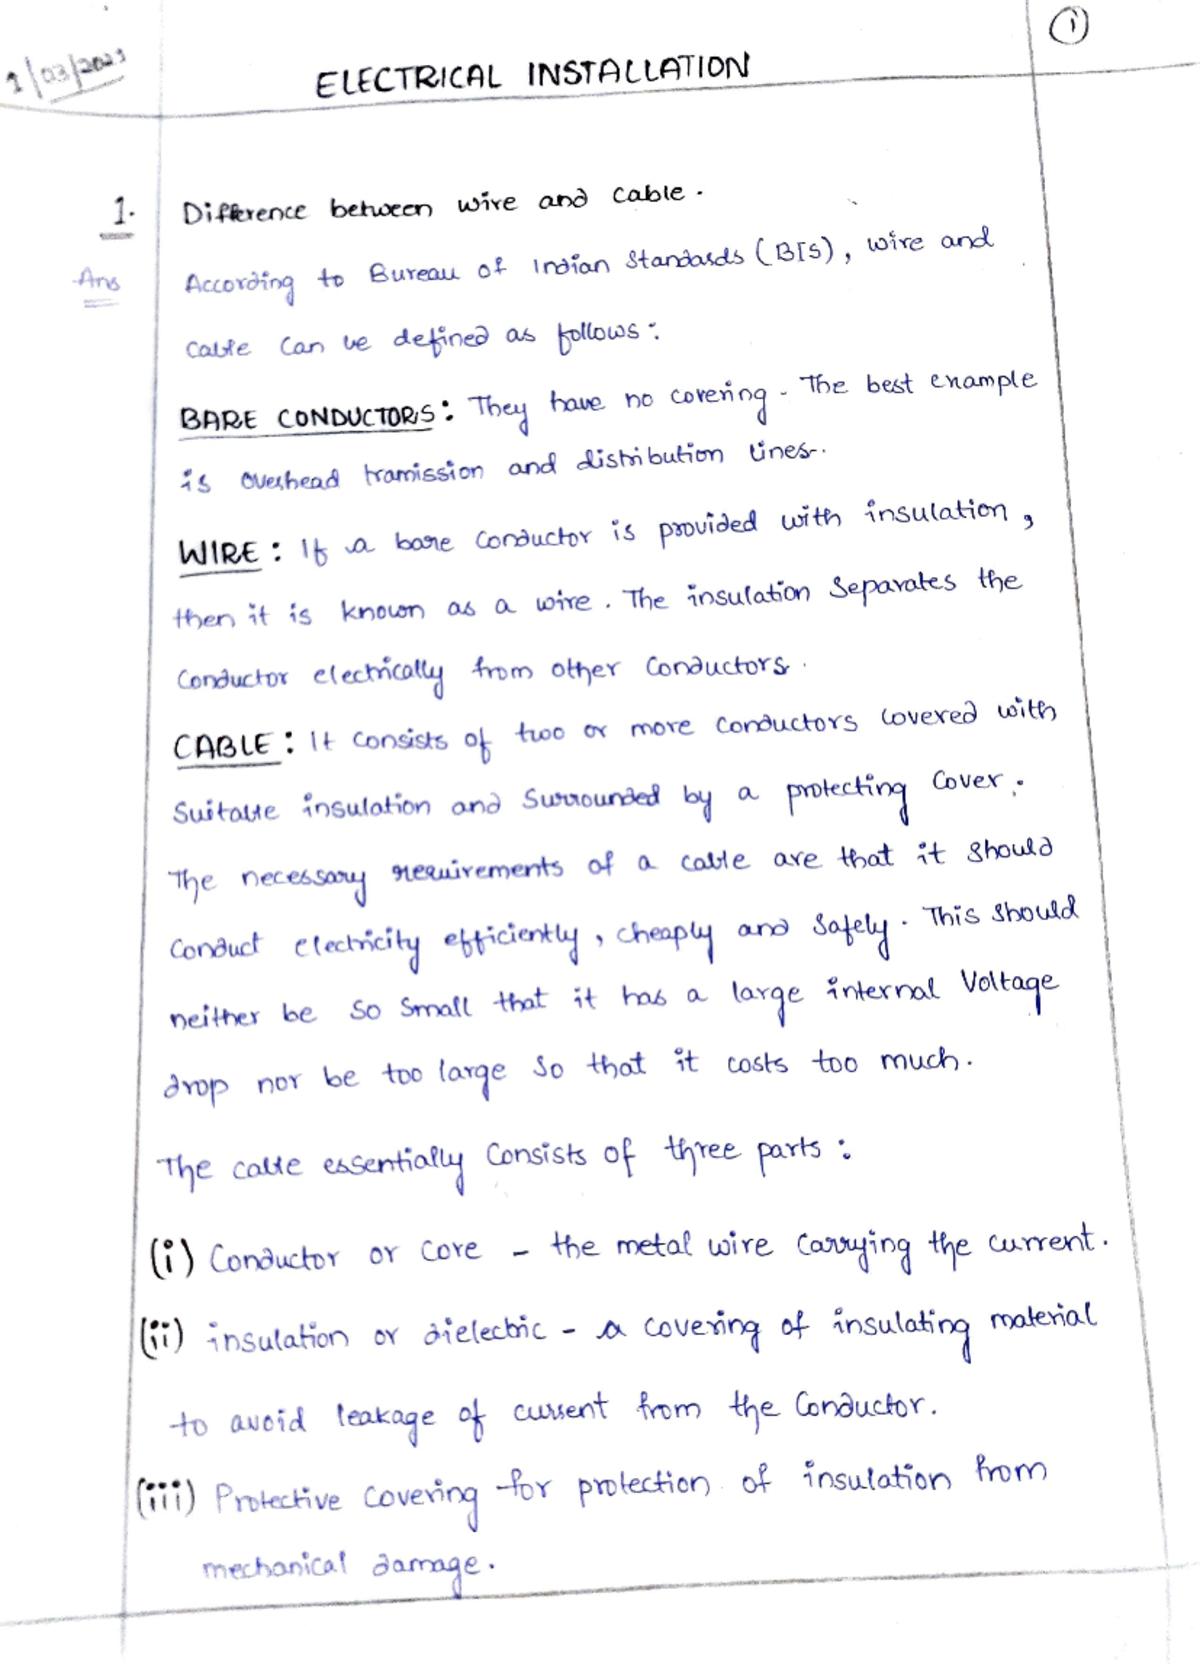 1/03/2023
①
ELECTRICAL INSTALLATION
1. Difference between wire and cable.
Ans According to Bureau of Indian Standards (BIS), wire and
cable can be defined as follows:
BARE CONDUCTORS: They have no covering. The best example
is overhead tramission and distribution lines.
WIRE: If a bare conductor is provided with insulation,
then it is known as a wire. The insulation separates the
conductor electrically from other conductors.
CABLE: It consists of two or more conductors covered with
suitable insulation and surrounded by a protecting cover.
The necessary requirements of a cable are that it should
conduct electricity efficiently, cheaply and safely. This should
neither be so small that it has a large internal voltage
drop nor be too large so that it costs too much.
The cable essentially consists of three parts:
(i) Conductor or core - the metal wire carrying the current.
(ii) insulation or dielectric - a covering of insulating material
to avoid leakage of current from the conductor.
(iii) Protective covering for protection of insulation from
mechanical damage.